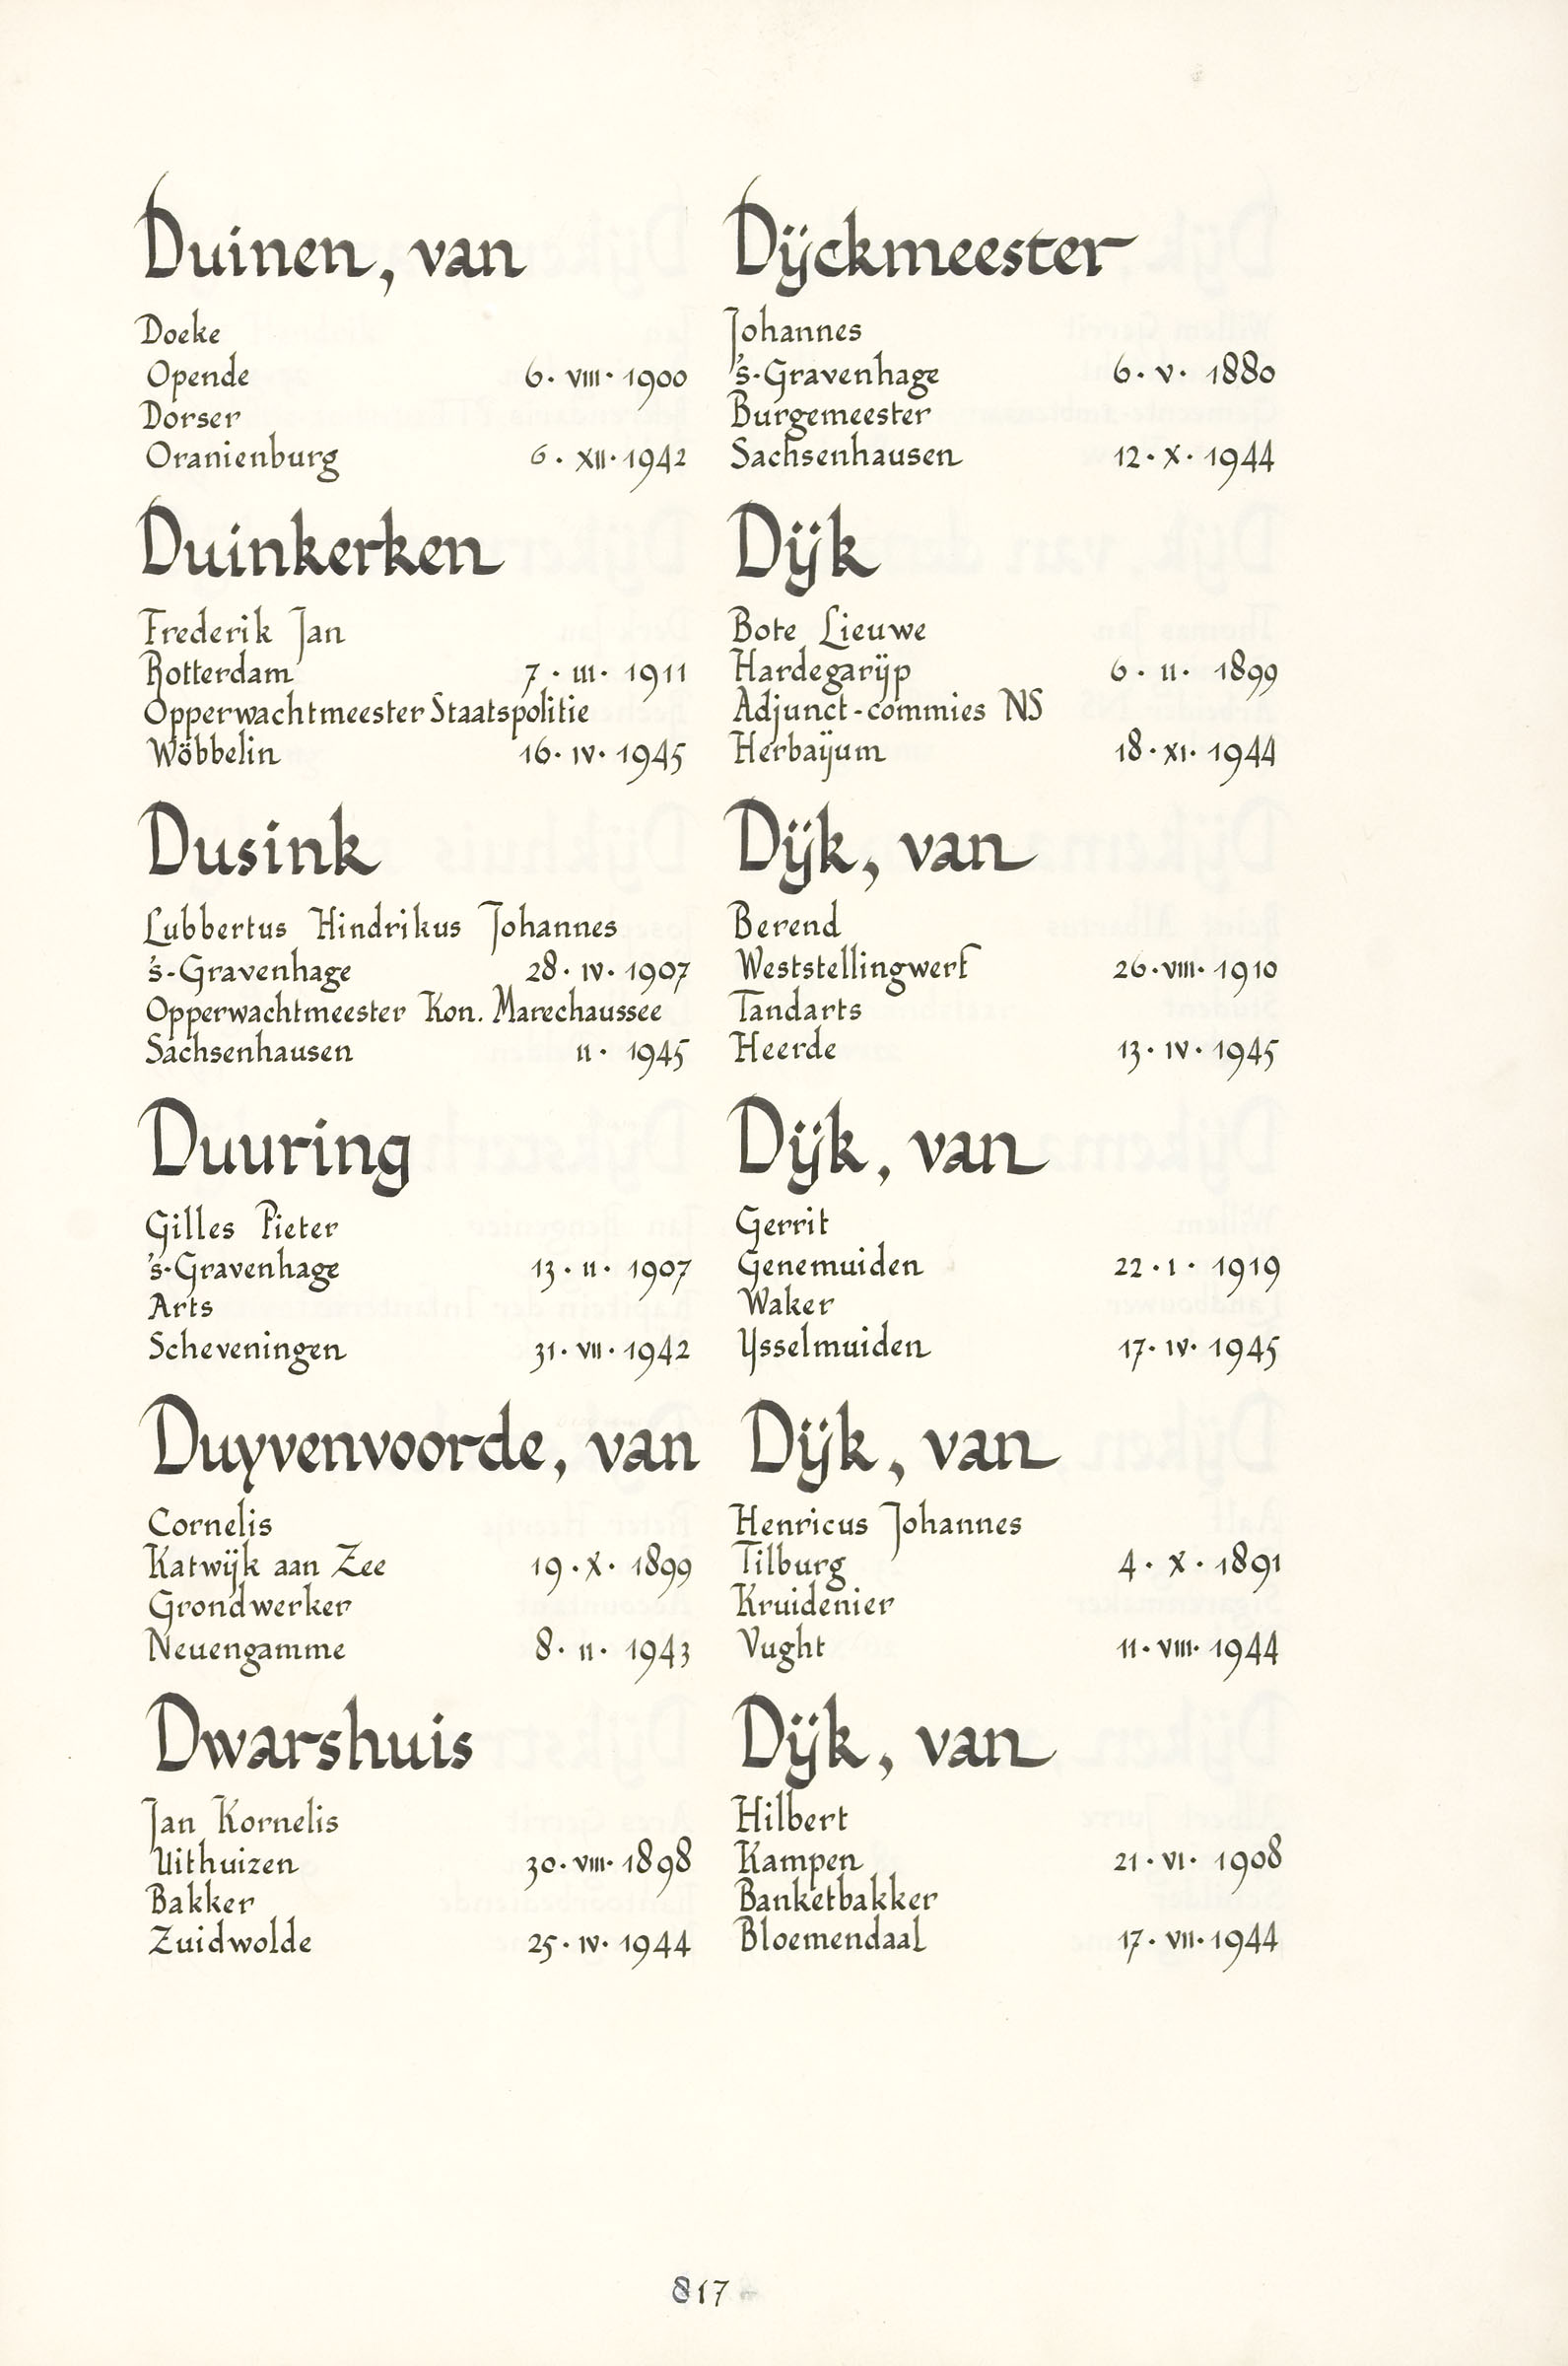 Duinen, van
Doeke
Opende 6 · VIII · 1900
Dorser
Oranienburg 6 · XII · 1942
Duinkerken
Frederik Jan
Rotterdam 7 · III · 1911
Opperwachtmeester Staatspolitie
Wöbbelin 16 · IV · 1945
Dusink
Lubbertus Hindrikus Johannes
's-Gravenhage 28 · IV · 1907
Opperwachtmeester Kon. Marechaussee
Sachsenhausen II · 1945
Duuring
Gilles Pieter
's-Gravenhage 13 · II · 1907
Arts
Scheveningen 31 · VII · 1942
Duyvenvoorde, van
Cornelis
Katwijk aan Zee 19 · X · 1899
Grondwerker
Neuengamme 8 · II · 1943
Dwarshuis
Jan Kornelis
Uithuizen 30 · VIII · 1898
Bakker
Zuidwolde 25 · IV · 1944
Dijckmeester
Johannes
's-Gravenhage 6 · V · 1880
Burgemeester
Sachsenhausen 12 · X · 1944
Dijk
Bote Lieuwe
Hardegarijp 6 · II · 1899
Adjunct-commies NS
Herbaijum 18 · XI · 1944
Dijk, van
Berend
Weststellingwerf 26 · VIII · 1910
Tandarts
Heerde 13 · IV · 1945
Dijk, van
Gerrit
Genemuiden 22 · I · 1919
Waker
IJsselmuiden 17 · IV · 1945
Dijk, van
Henricus Johannes
Tilburg 4 · X · 1891
Kruidenier
Vught 11 · VIII · 1944
Dijk, van
Hilbert
Kampen 21 · VI · 1908
Banketbakker
Bloemendaal 17 · VII · 1944
817